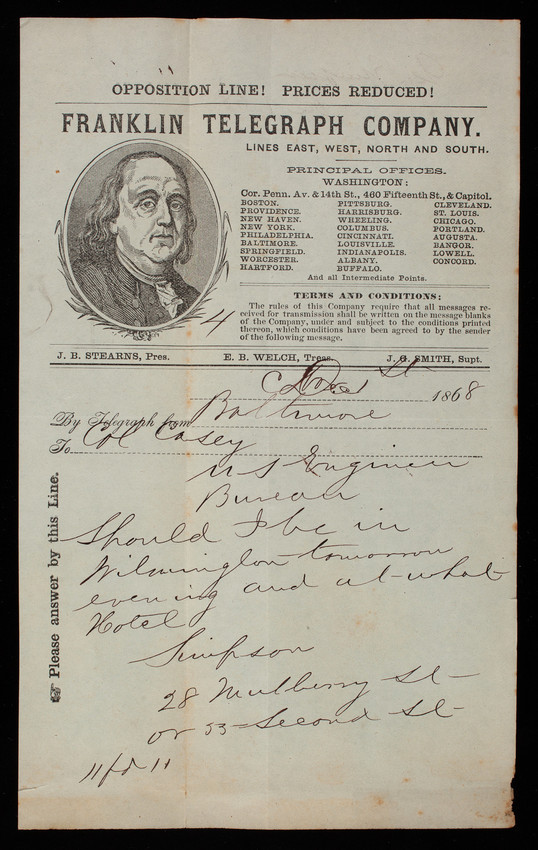 OPPOSITION LINE! PRICES REDUCED!
FRANKLIN TELEGRAPH COMPANY.
LINES EAST, WEST, NORTH AND SOUTH.
PRINCIPAL OFFICES.
WASHINGTON:
Cor. Penn. Av. & 14th St., 460 Fifteenth St., & Capitol.
BOSTON. PITTSBURG. CLEVELAND.
PROVIDENCE. HARRISBURG. ST. LOUIS.
NEW HAVEN. WHEELING. CHICAGO.
NEW YORK. COLUMBUS. PORTLAND.
PHILADELPHIA. CINCINNATI. AUGUSTA.
BALTIMORE. LOUISVILLE. BANGOR.
SPRINGFIELD. INDIANAPOLIS. LOWELL.
WORCESTER. ALBANY. CONCORD.
HARTFORD. BUFFALO.
And all Intermediate Points.
TERMS AND CONDITIONS:
The rules of this Company require that all messages re-
ceived for transmission shall be written on the message blanks
of the Company, under and subject to the conditions printed
thereon, which conditions have been agreed to by the sender
of the following message.
4
J. B. STEARNS, Pres. E. B. WELCH, Treas. J. G. SMITH, Supt.
1868
By Telegraph from Baltimore
To Col Casey
U S Engineer
Bureau
Should I be in
Wilmington tomorrow
evening and at what
Hotel
Simpson
28 Mulberry St
or 33 Second St
Please answer by this Line.